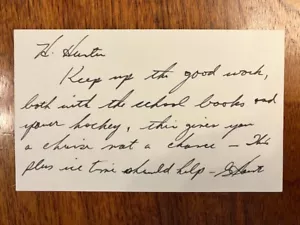 Hi Hunter
Keep up the good work,
both with the school books and
your hockey, this gives you
a choice not a chance – This
plus ice time should help –